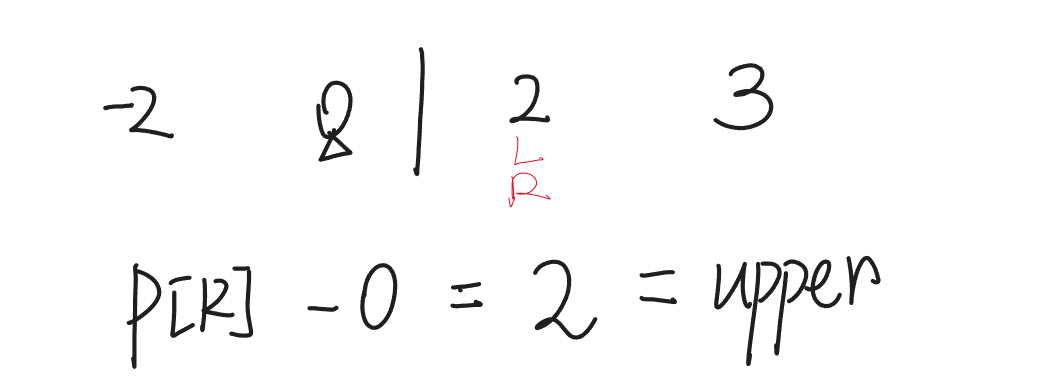 -2 0 | 2 3
L
R
P[R] - 0 = 2 = upper